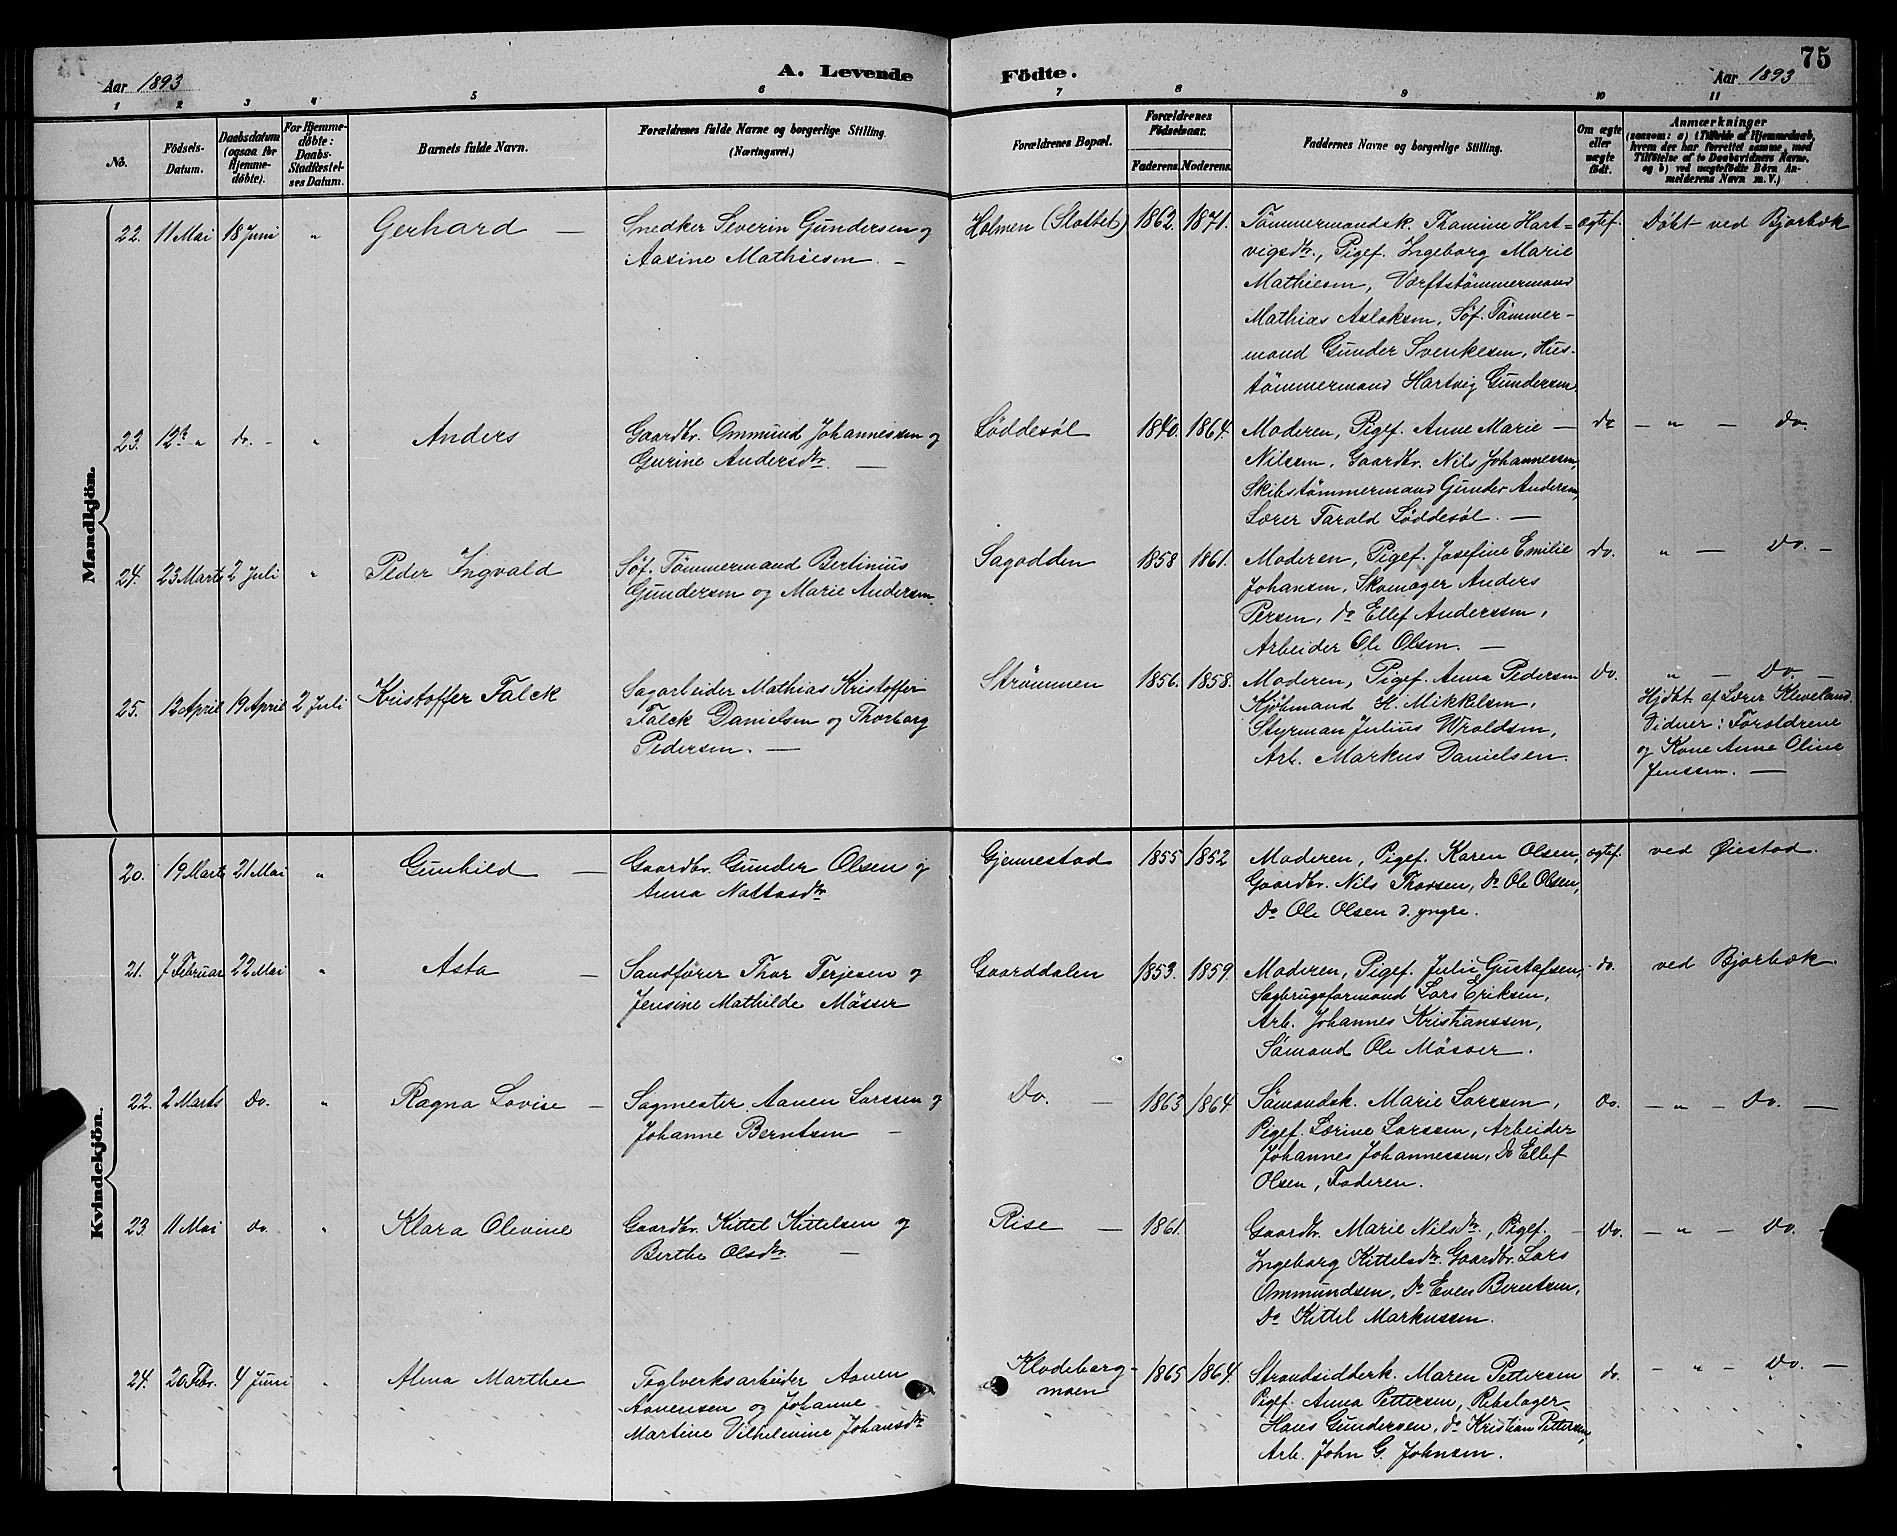 75
Aar 1893
A. Levende
Födte.
Aar 1893
1 2 3 4 5 6 7 8 9 10 11
No.
Födsels-
Datum.
Daabsdatum
(ogsaa for
Hjemme-
döbte).
For Hjemme-
döbte:
Daabs-
Stadfæstel-
ses Datum.
Barnets fulde Navn.
Forældrenes fulde Navne og borgerlige Stilling.
(Næringsvei.)
Forældrenes Bopæl.
Forældrenes
Födselsaar.
Faderens. Moderens.
Faddernes Navne og borgerlige Stilling.
Om ægte
eller
uægte
födt.
Anmærkninger
(saasom: a) i Tilfælde af Hjemmedaab,
hvem der har forrettet samme, med
Tilföielse af to Daabsvidners Navne,
og b) ved uægtefödte Börn An-
melderens Navn m. V.)
Mandkjön.
22. 11 Mai 18 Juni " Gerhard —
Snedker Severin Gundersen og
Aasine Mathiesen. —
Holmen (Slottet) 1862. 1871.
Tömmermandsk. Thomine Hart-
vigsdtr., Pigef. Ingeborg Marie
Mathiesen, Værftstömmermand
Mathias Aslaksen, Söf. Tömmer-
mand Gunder Svenkesen, Hus-
tömmermand Hartvig Gundersen
ægtef. Döbt ved Bjorbæk
23. 12te " do. — " Anders
Gaardbr. Ommund Johannessen og
Gurine Andersdtr. —
Løddesøl 1840. 1864.
Moderen, Pigef. Anne Marie —
Nilssen, Gaardbr. Nils Johannessen,
Skibstömmermand Gunder Andersen,
Lærer Tarald Løddesøl. —
do — " — do.
24. 23 Marts 2 Juli " Peder Ingvald
Söf. Tömmermand Bertinius
Gundersen og Marie Andersen.
Sagodden 1858 1861.
Moderen, Pigef. Josefine Emilie
Johansen, Skomager Anders
Persen, do Ellef Anderssen,
Arbeider Ole Olsen. —
do. " — Do. —
25. 12 April 19 April 2 Juli Kristoffer Falck
Sagarbeider Mathias Kristoffer
Falck Danielsen og Thorborg
Pedersen. —
Strømmen 1856. 1858.
Moderen, Pigef. Anna Pedersen
Kjøbmand H. Mikkelsen,
Styrman Julius Wroldsen,
Arb. Markus Danielsen.
do. " — Do —
Hjdbt. af Lærer Kleveland.
Vidner: Forældrene
og Kone Anne Oline
Jenssen. —
Kvindekjön.
20. 19 Marts 21 Mai " Gunhild —
Gaardbr. Gunder Olsen og
Anna Nattasdtr
Gjennestad 1855 1852
Moderen, Pigef. Karen Olsen,
Gaardbr. Nils Thorsen, do Ole Olsen,
Do Ole Olsen d. yngre.
ægtef. ved Øiestad.
21. 7 Februar 22 Mai " Asta —
Sandfører Thor Terjesen og
Jensine Mathilde Mösser
Gaarddalen 1853. 1859.
Moderen, Pigef. Julie Gustafsen,
Sagbrugsformand Lars Eriksen,
Arb. Johannes Kristianssen,
Sömand Ole Mösser.
do. ved Bjorbæk.
22. 2 Marts do. " Ragna Lovise —
Sagmester Aanen Larssen og
Johanne Berntsen —
Do. — 1863 1864
Sömandsk. Marie Larssen,
Pigef. Lærine Larssen, Arbeider
Johannes Johannessen, do Ellef
Olsen, Faderen.
do. — " — Do. —
23. 11 Mai do. " Klara Olevine
Gaardbr. Kittel Kittelsen og
Berthe Olsdtr. —
Rise — 1861.
Gaardbr. Marie Nilsdtr., Pigef. —
Ingeborg Kittelsdtr. Gaardbr. Lars
Ommundsen, do Even Berntsen,
do Kittel Markussen.
Do. — " — Do. —
24. 20 Febr. 4 Juni " Alma Marthee
Teglverksarbeider Aanen
Aanensen og Johanne
Martine Vilhelmine Johansdtr
Klodeborg-
moen 1865 1864.
Strandsidderk. Maren Pettersen
Pigef. Anna Pettersen, Rebslager
Hans Gundersen, do Kristian Pettersen,
Arb. John G. Johnsen.
do. — " — Do. —